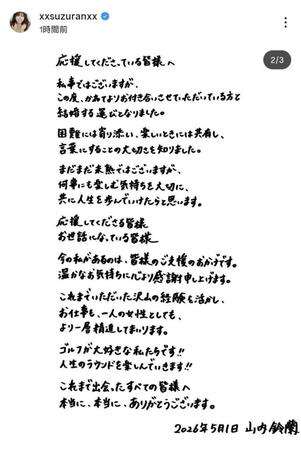 xxsuzuranxx
1時間前
2/3
応援してくださっている皆様へ
私事ではございますが、
この度、かねてよりお付き合いさせていただいている方と
結婚する運びとなりました。
困難には寄り添い、楽しいときには共有し、
言葉にすることの大切さを知りました。
まだまだ未熟ではございますが、
何事にも楽しむ気持ちを大切に、
共に人生を歩んでいけたらと思います。
応援してくださる皆様
お世話になっている皆様
今の私があるのは、皆様のご支援のおかげです。
温かなお気持ちに心より感謝申し上げます。
これまでいただいた沢山の経験も活かし、
お仕事も、一人の女性としても、
より一層精進してまいります。
ゴルフが大好きな私たちです!!
人生のラウンドを楽しんでいきます!!
これまで出会ったすべての皆様へ
本当に、本当に、ありがとうございます。
2026年5月1日 山内鈴蘭